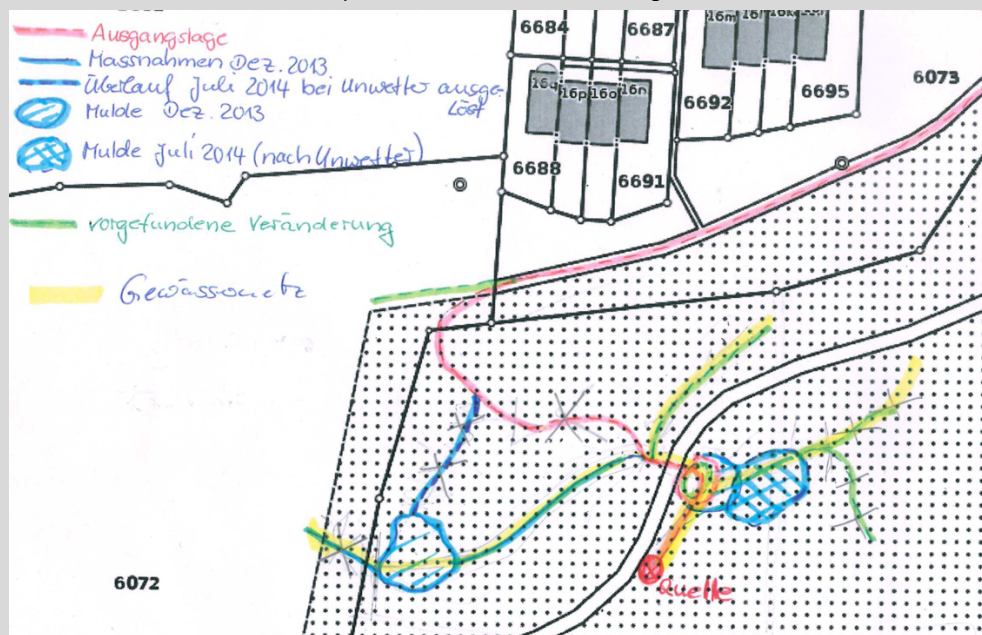 Ausgangslage
Massnahmen Dez. 2013
Überlauf Juli 2014 bei Unwetter ausge-
löst
Mulde Dez. 2013
Mulde Juli 2014 (nach Unwetter)
vorgefundene Veränderung
Gewässernetz
6684
6687
16m
6073
16q
16p
16o
16n
6692
6695
6688
6691
6072
Quelle